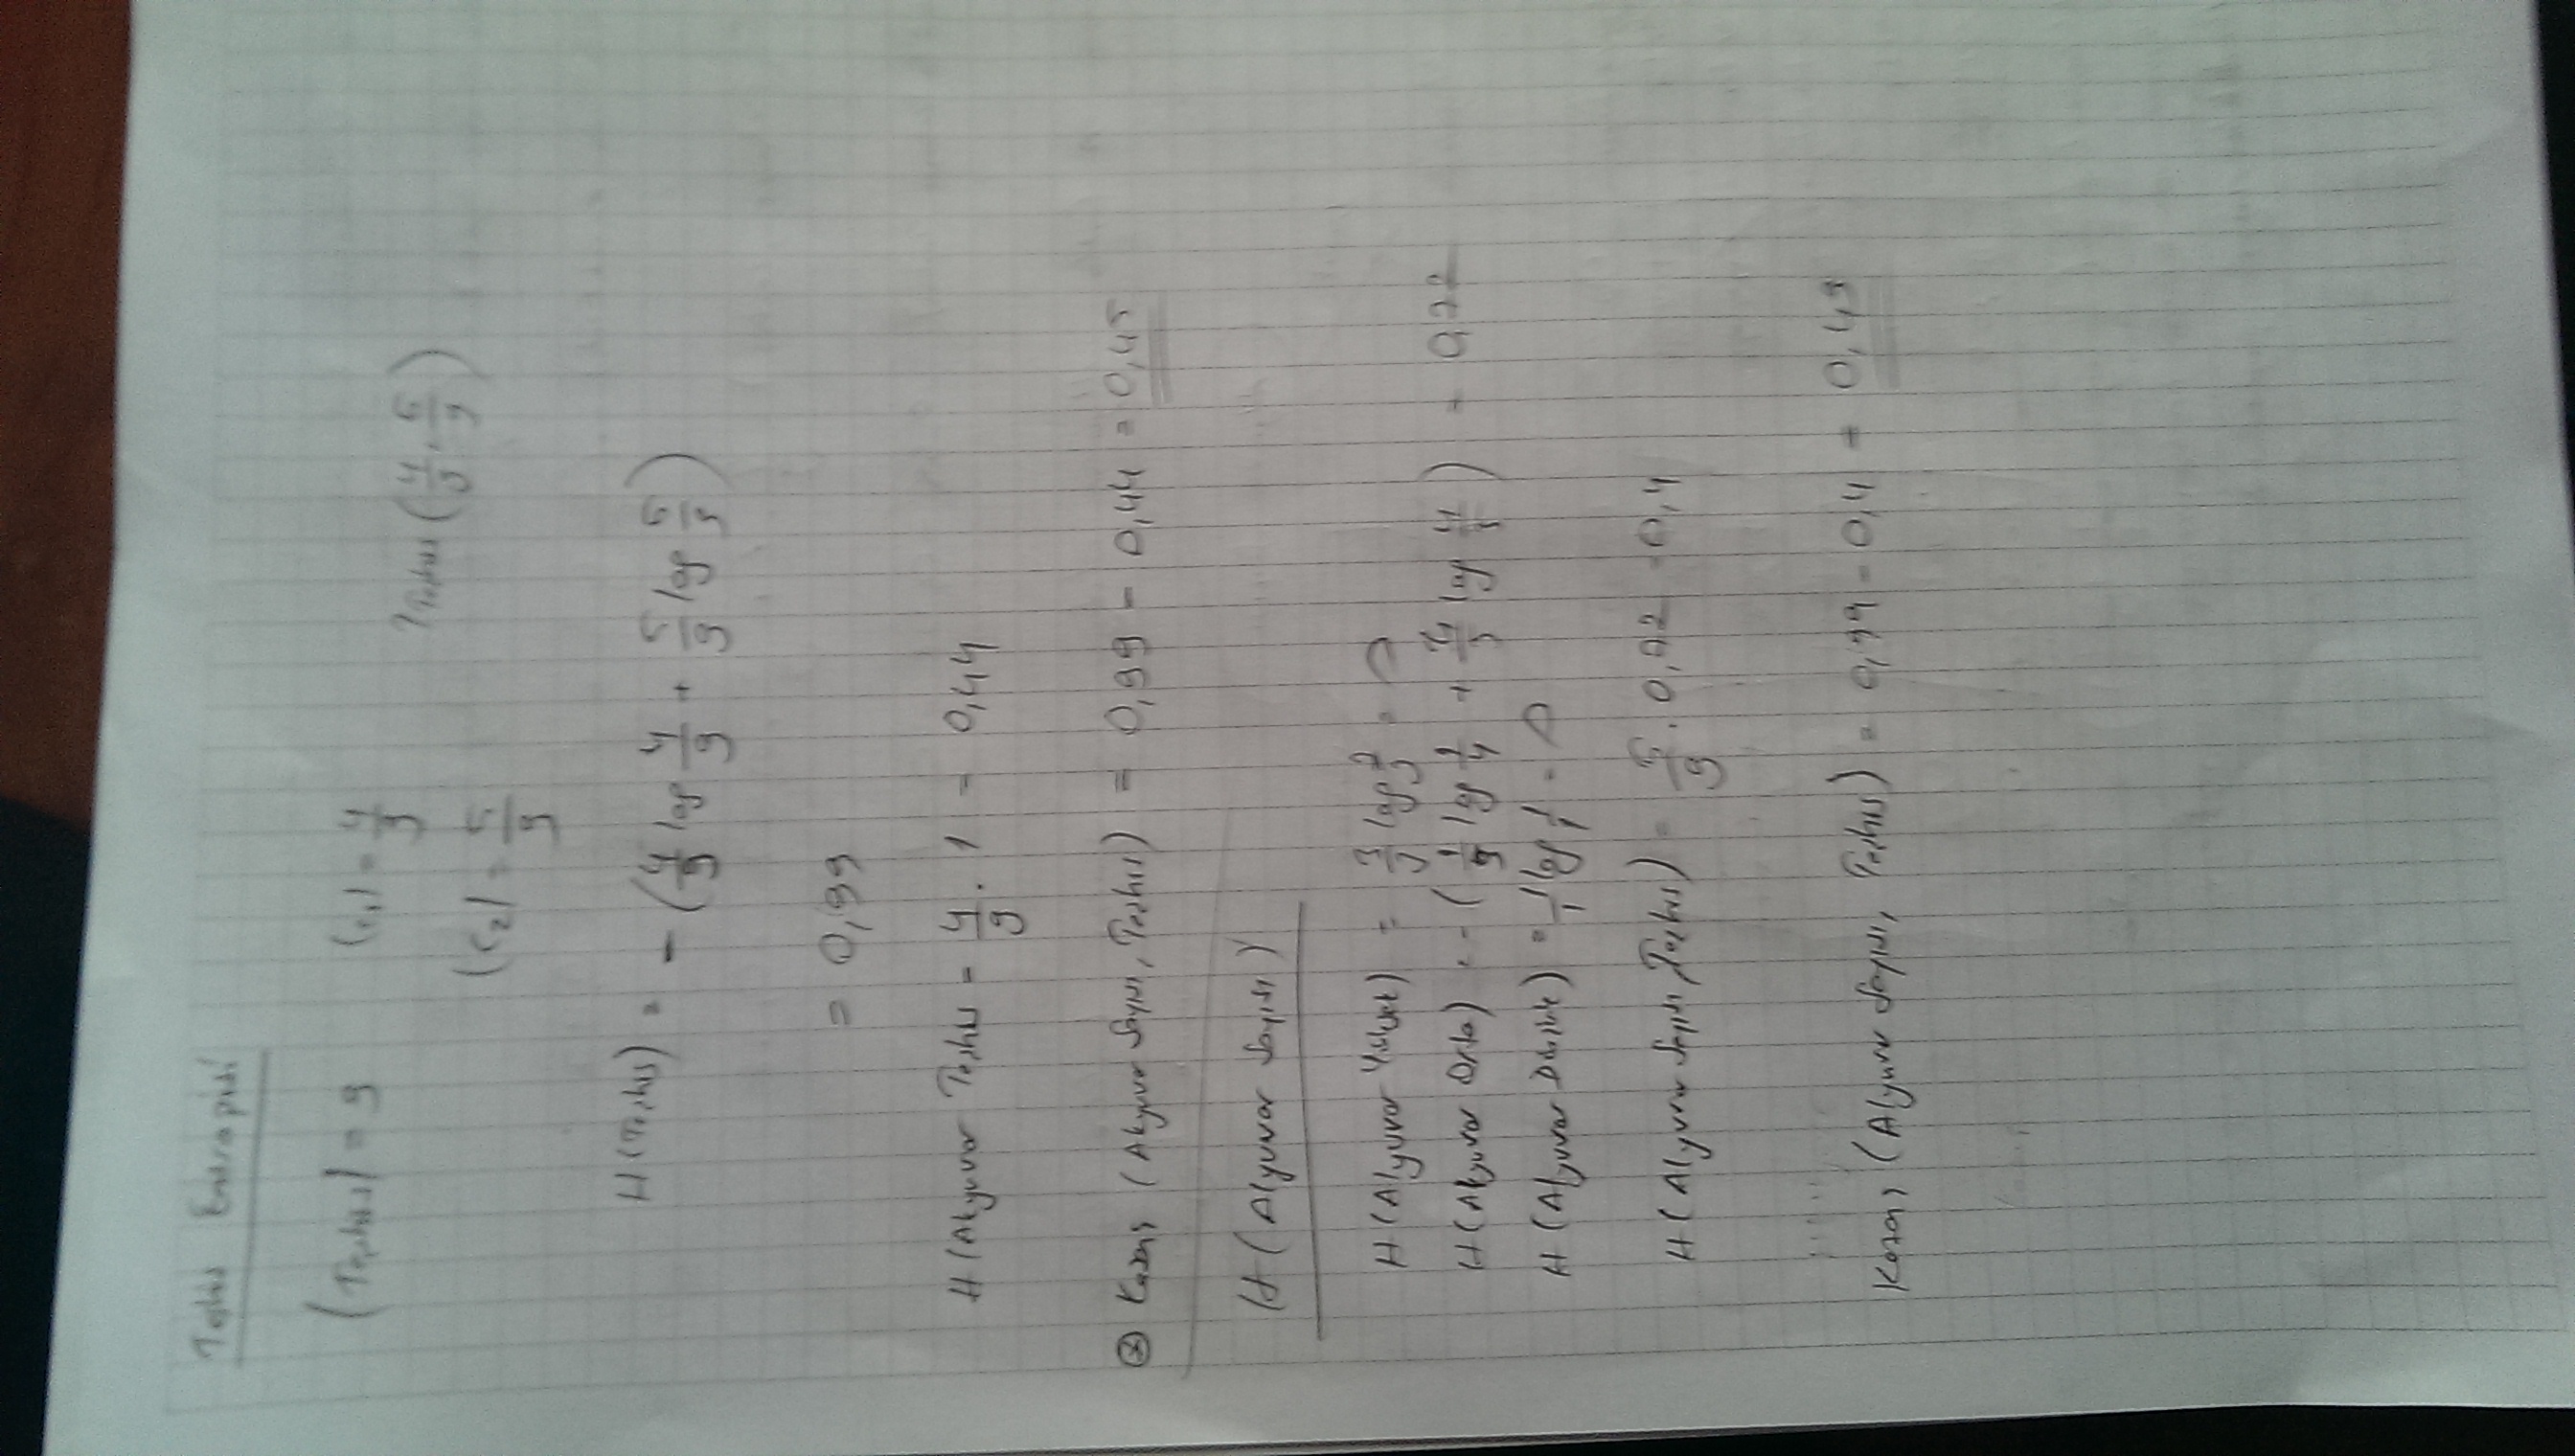 Teşhis Entropisi
|Teşhis| = 9 |C₁| = 4/9
|C₂| = 5/9 Teşhis (4/9, 5/9)
H(Teşhis) = - (4/9 log 4/9 + 5/9 log 5/9)
= 0,99
H(Akyuvar Teşhis = 4/9 . 1 = 0,44
Kazanç (Akyuvar Sayısı, Teşhis) = 0,99 - 0,44 = 0,45
H (Alyuvar Sayısı)
H (Alyuvar Yüksek) = 3/3 log 3/3 = 0
H (Alyuvar Orta) = - ( log + 4/5 log 4/5 ) = 0,72
H (Alyuvar Düşük) = 1/1 log 1/1 = 0
H (Alyuvar Sayısı, Teşhis) = 5/9 . 0,72 = 0,4
Kazanç (Alyuvar Sayısı, Teşhis) = 0,99 - 0,4 = 0,49